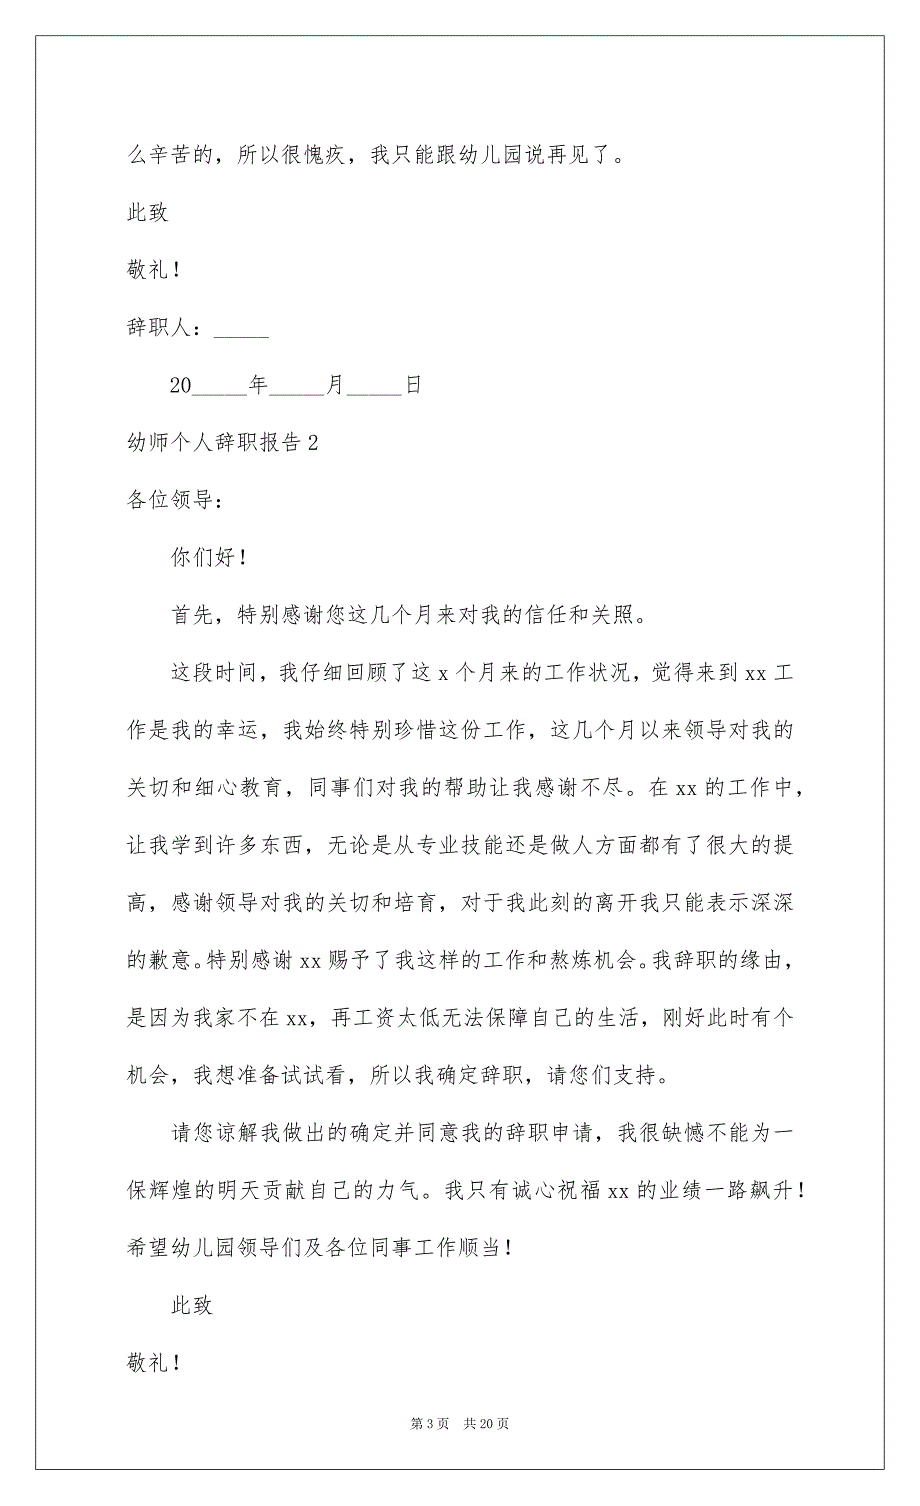 么辛苦的，所以很愧疚，我只能跟幼儿园说再见了。
此致
敬礼！
辞职人：_____
20_____年_____月_____日
幼师个人辞职报告2
各位领导：
你们好！
首先，特别感谢您这几个月来对我的信任和关照。
这段时间，我仔细回顾了这x个月来的工作状况，觉得来到xx工
作是我的幸运，我始终特别珍惜这份工作，这几个月以来领导对我的
关切和细心教育，同事们对我的帮助让我感谢不尽。在xx的工作中，
让我学到许多东西，无论是从专业技能还是做人方面都有了很大的提
高，感谢领导对我的关切和培育，对于我此刻的离开我只能表示深深
的歉意。特别感谢xx赐予了我这样的工作和熬炼机会。我辞职的缘由，
是因为我家不在xx，再工资太低无法保障自己的生活，刚好此时有个
机会，我想准备试试看，所以我确定辞职，请您们支持。
请您谅解我做出的确定并同意我的辞职申请，我很缺憾不能为一
保辉煌的明天贡献自己的力气。我只有诚心祝福xx的业绩一路飙升！
希望幼儿园领导们及各位同事工作顺当！
此致
敬礼！
第3页 共20页